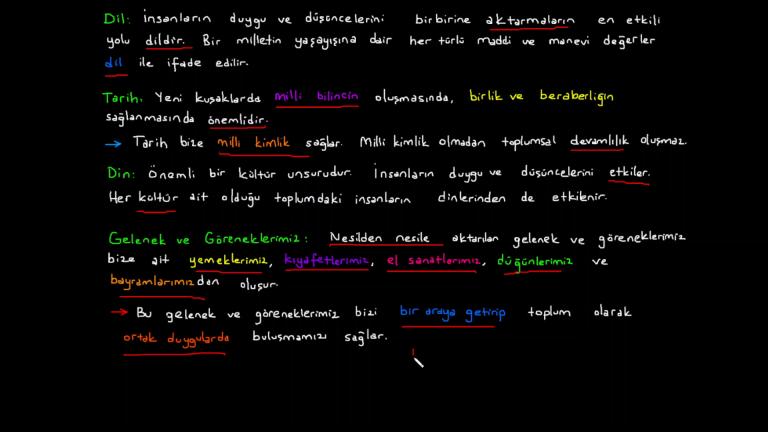 Dil: İnsanların duygu ve düşüncelerini birbirine aktarmaların en etkili
yolu dildir. Bir milletin yaşayışına dair her türlü maddi ve manevi değerler
dil ile ifade edilir.
Tarih. Yeni kuşaklarda milli bilincin oluşmasında, birlik ve beraberliğin
sağlanmasında önemlidir.
→ Tarih bize milli kimlik sağlar. Milli kimlik olmadan toplumsal devamlılık oluşmaz.
Din: Önemli bir kültür unsurudur. İnsanların duygu ve düşüncelerini etkiler.
Her kültür ait olduğu toplumdaki insanların dinlerinden de etkilenir.
Gelenek ve Göreneklerimiz: Nesilden nesile aktarılan gelenek ve göreneklerimiz
bize ait yemeklerimiz, kıyafetlerimiz, el sanatlarımız, düğünlerimiz ve
bayramlarımızdan oluşur.
→ Bu gelenek ve göreneklerimiz bizi bir araya getirip toplum olarak
ortak duygularda buluşmamızı sağlar.